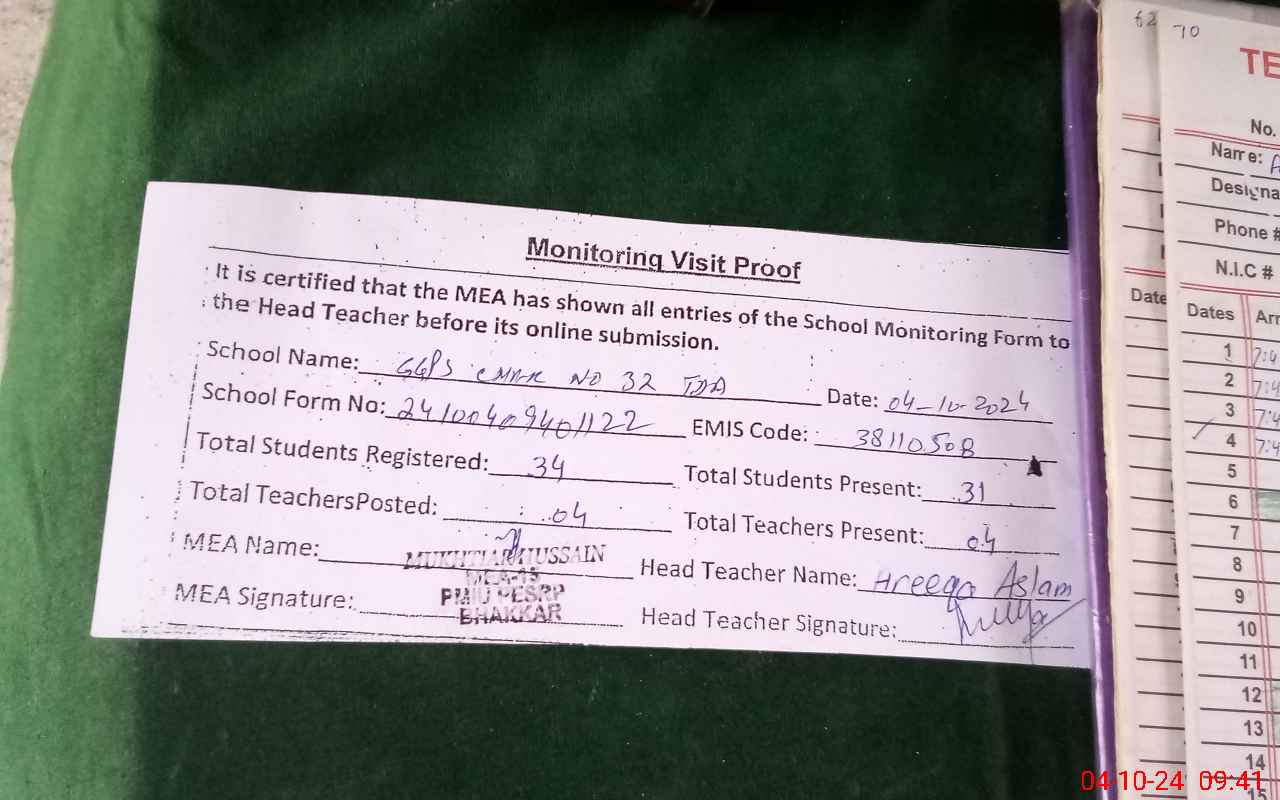 Monitoring Visit Proof
It is certified that the MEA has shown all entries of the School Monitoring Form to
the Head Teacher before its online submission.
School Name: GGPS NO 32 TDA Date: 04-10-2024
School Form No: 24100409401122 EMIS Code: 38110508
Total Students Registered: 34 Total Students Present: 31
Total TeachersPosted: 04 Total Teachers Present: 04
MEA Name: MUKHTIAR HUSSAIN Head Teacher Name: Areeqa Aslam
MEA-15
PMIU PESRP
MEA Signature: BHAKKAR Head Teacher Signature:
62
70
TE
No.
Name:
Designa
Phone #
N.I.C #
Date
Dates Arr
1 7:4
2 7:4
3 7:4
4 7:4
5
6
7
8
9
10
11
12
13
14
15
04-10-24 09:41